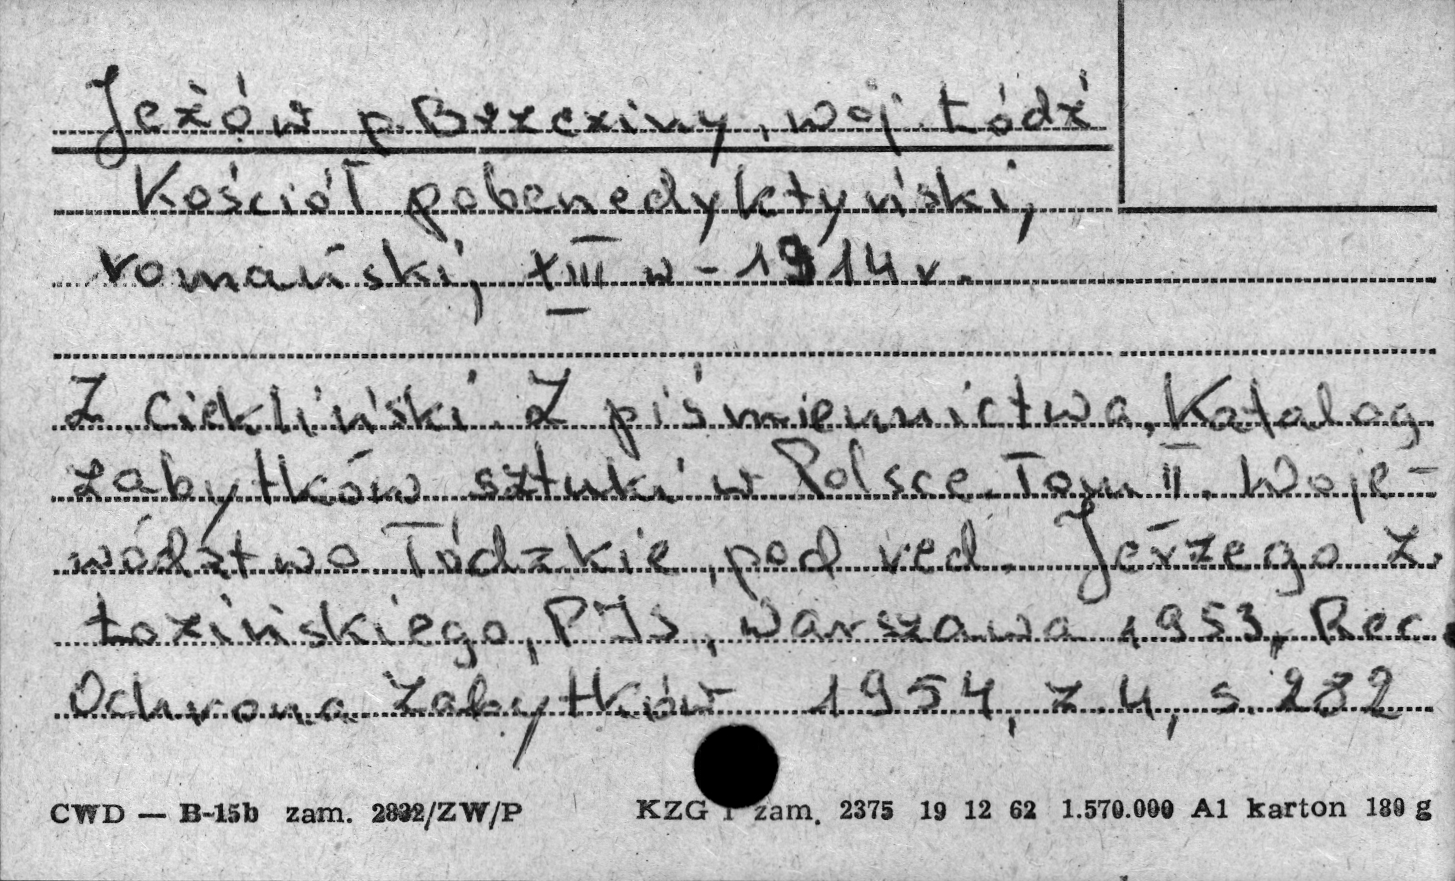 Jeżów p. Brzeziny, woj. Łódź
Kościół pobenedyktyński,
romański, XIII w - 1914 r.
Z. Ciekliński. Z piśmiennictwa. Katalog
zabytków sztuki w Polsce. Tom II. Woje-
wództwo łódzkie, pod red. Jerzego Z.
Łozińskiego, PIS, Warszawa 1953, Rec.
Ochrona Zabytków 1954, z. 4, s. 282
CWD — B-15b zam. 2832/ZW/P KZG 1 zam. 2375 19 12 62 1.570.000 A1 karton 180 g